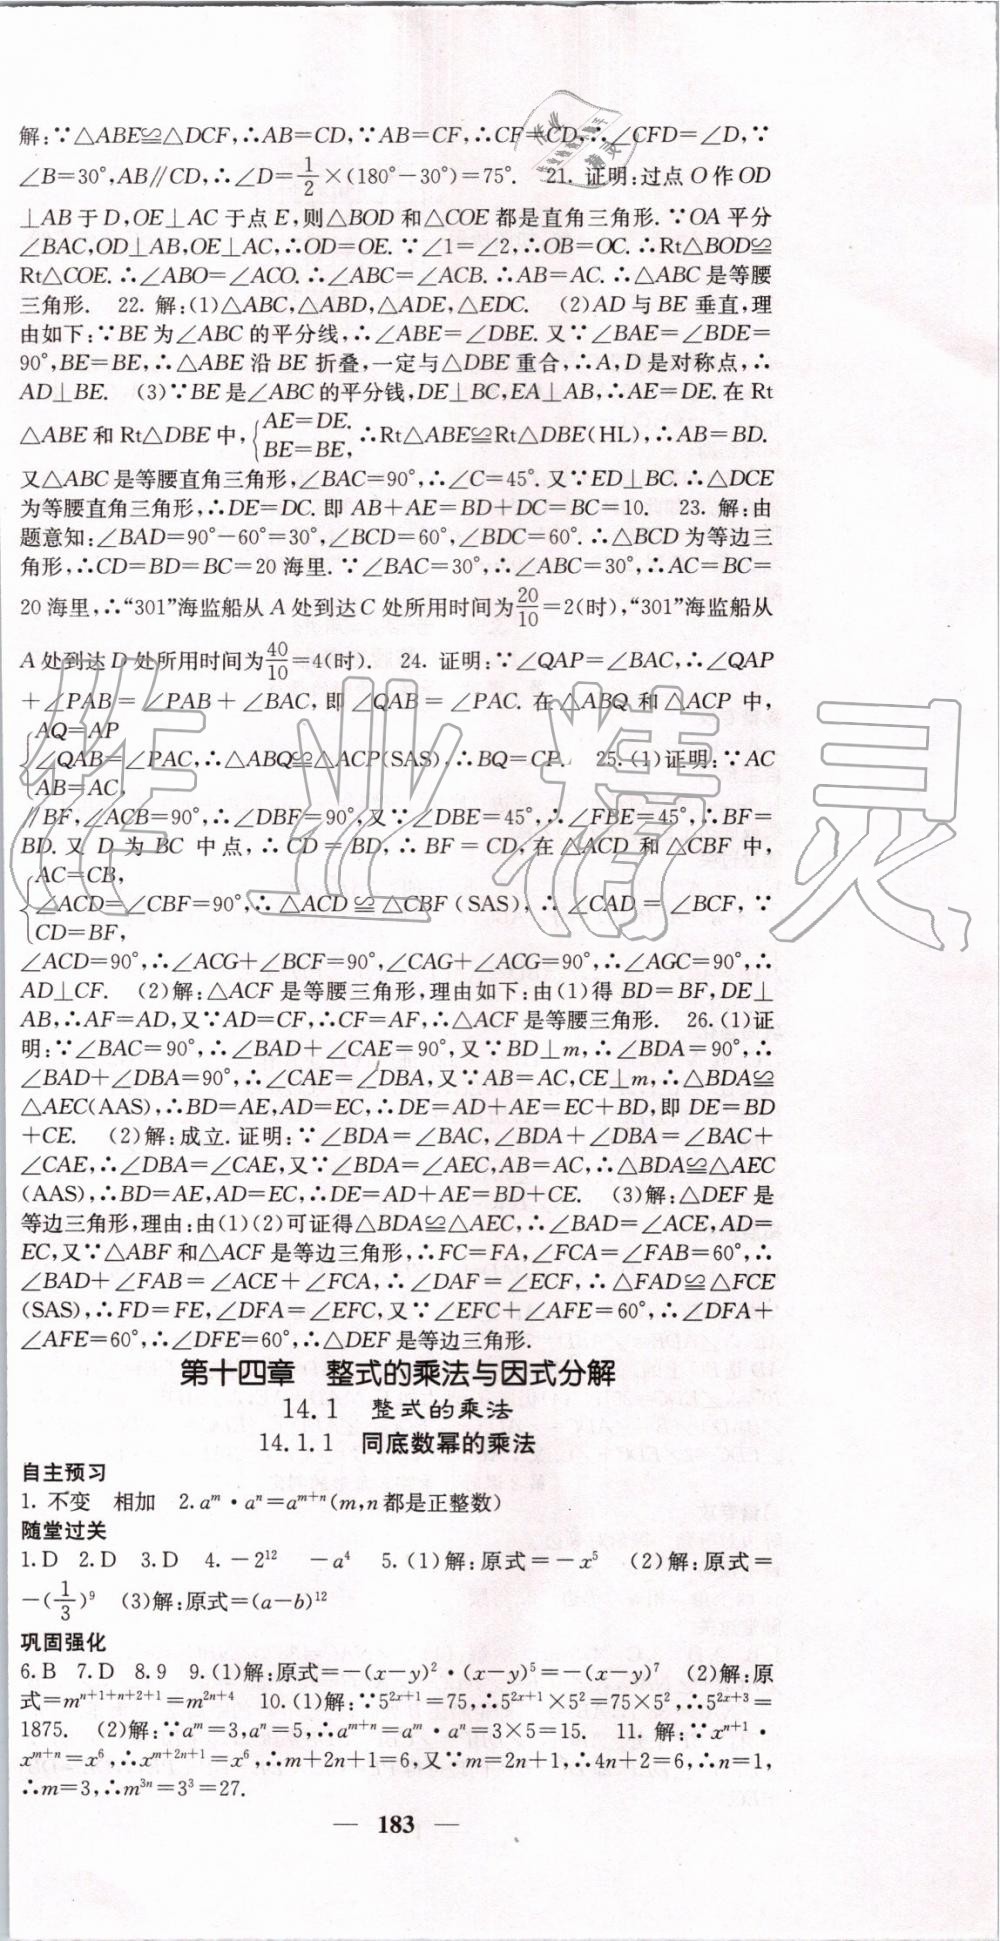 解:∵△ABE≌△DCF,∴AB=CD,∵AB=CF,∴CF=CD,∴∠CFD=∠D,∵
∠B=30°,AB∥CD,∴∠D=1/2×(180°-30°)=75°. 21. 证明:过点O作OD
⊥AB于D,OE⊥AC于点E,则△BOD和△COE都是直角三角形.∵OA平分
∠BAC,OD⊥AB,OE⊥AC,∴OD=OE.∵∠1=∠2,∴OB=OC.∴Rt△BOD≌
Rt△COE.∴∠ABO=∠ACO.∴∠ABC=∠ACB.∴AB=AC.∴△ABC是等腰
三角形. 22. 解:(1)△ABC,△ABD,△ADE,△EDC. (2)AD与BE垂直,理
由如下:∵BE为∠ABC的平分线,∴∠ABE=∠DBE.又∵∠BAE=∠BDE=
90°,BE=BE,∴△ABE沿BE折叠,一定与△DBE重合,∴A,D是对称点,∴
AD⊥BE. (3)∵BE是∠ABC的平分钱,DE⊥BC,EA⊥AB,∴AE=DE.在Rt
△ABE和Rt△DBE中,{AE=DE. BE=BE, ∴Rt△ABE≌Rt△DBE(HL),∴AB=BD.
又△ABC是等腰直角三角形,∠BAC=90°,∴∠C=45°.又∵ED⊥BC.∴△DCE
为等腰直角三角形,∴DE=DC.即AB+AE=BD+DC=BC=10. 23. 解:由
题意知:∠BAD=90°-60°=30°,∠BCD=60°,∠BDC=60°.∴△BCD为等边三
角形,∴CD=BD=BC=20海里.∵∠BAC=30°,∴∠ABC=30°,∴AC=BC=
20海里,∴“301”海监船从A处到达C处所用时间为20/10=2(时),“301”海监船从
A处到达D处所用时间为40/10=4(时). 24. 证明:∵∠QAP=∠BAC,∴∠QAP
+∠PAB=∠PAB+∠BAC,即∠QAB=∠PAC.在△ABQ和△ACP中,
AQ=AP
∠QAB=∠PAC,∴△ABQ≌△ACP(SAS),∴BQ=CP. 25.(1)证明:∵AC
AB=AC,
∥BF,∠ACB=90°,∴∠DBF=90°,又∵∠DBE=45°,∴∠FBE=45°,∴BF=
BD.又D为BC中点,∴CD=BD,∴BF=CD,在△ACD和△CBF中,
AC=CB,
∠ACD=∠CBF=90°,∴△ACD≌△CBF(SAS),∴∠CAD=∠BCF,∵
CD=BF,
∠ACD=90°,∴∠ACG+∠BCF=90°,∠CAG+∠ACG=90°,∴∠AGC=90°,∴
AD⊥CF. (2)解:△ACF是等腰三角形,理由如下:由(1)得BD=BF,DE⊥
AB,∴AF=AD,又∵AD=CF,∴CF=AF,∴△ACF是等腰三角形. 26.(1)证
明:∵∠BAC=90°,∴∠BAD+∠CAE=90°,又∵BD⊥m,∴∠BDA=90°,∴
∠BAD+∠DBA=90°,∴∠CAE=∠DBA,又∵AB=AC,CE⊥m,∴△BDA≌
△AEC(AAS),∴BD=AE,AD=EC,∴DE=AD+AE=EC+BD,即DE=BD
+CE. (2)解:成立.证明:∵∠BDA=∠BAC,∠BDA+∠DBA=∠BAC+
∠CAE,∴∠DBA=∠CAE,又∵∠BDA=∠AEC,AB=AC,∴△BDA≌△AEC
(AAS),∴BD=AE,AD=EC,∴DE=AD+AE=BD+CE. (3)解:△DEF是
等边三角形,理由:由(1)(2)可证得△BDA≌△AEC,∴∠BAD=∠ACE,AD=
EC,又∵△ABF和△ACF是等边三角形,∴FC=FA,∠FCA=∠FAB=60°,∴
∠BAD+∠FAB=∠ACE+∠FCA,∴∠DAF=∠ECF,∴△FAD≌△FCE
(SAS),∴FD=FE,∠DFA=∠EFC,又∵∠EFC+∠AFE=60°,∴∠DFA+
∠AFE=60°,∴∠DFE=60°,∴△DEF是等边三角形.
第十四章 整式的乘法与因式分解
14.1 整式的乘法
14.1.1 同底数幂的乘法
自主预习
1. 不变 相加 2.aᵐ·aⁿ=aᵐ⁺ⁿ(m,n都是正整数)
随堂过关
1.D 2.D 3.D 4.-2¹² -a⁴ 5.(1)解:原式=-x⁵ (2)解:原式=
-(1/3)⁹ (3)解:原式=(a-b)¹²
巩固强化
6.B 7.D 8.9 9.(1)解:原式=-(x-y)²·(x-y)⁵=-(x-y)⁷ (2)解:原
式=mⁿ⁺¹⁺ⁿ⁺²⁺¹=m²ⁿ⁺⁴ 10.(1)解:∵5²ˣ⁺¹=75,∴5²ˣ⁺¹×5²=75×5²,∴5²ˣ⁺³=
1875. (2)解:∵aᵐ=3,aⁿ=5,∴aᵐ⁺ⁿ=aᵐ·aⁿ=3×5=15. 11. 解:∵xⁿ⁺¹·
xᵐ⁺ⁿ=x⁶,∴xᵐ⁺²ⁿ⁺¹=x⁶,∴m+2n+1=6,又∵m=2n+1,∴4n+2=6,∴n=1,
∴m=3,∴m³ⁿ=3³=27.
— 183 —
作业精灵